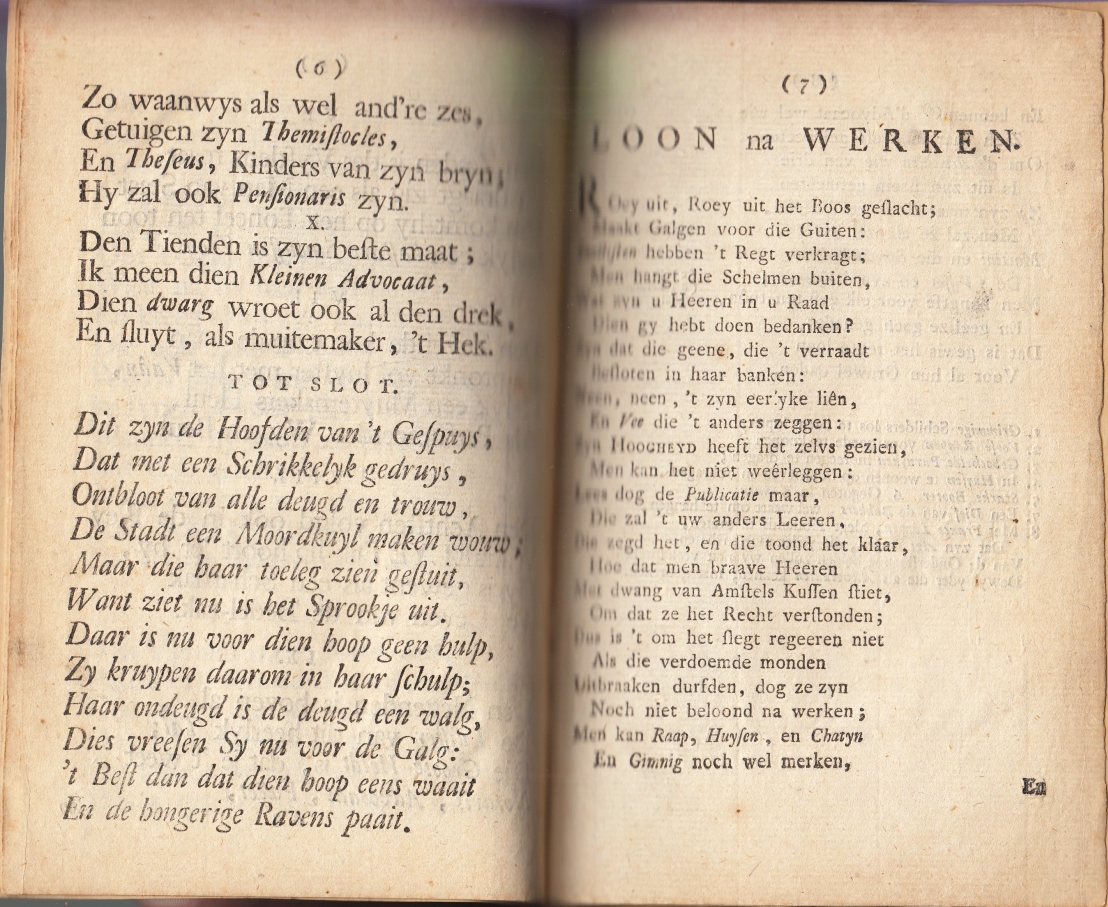 (6)
Zo waanwys als wel and're zes,
Getuigen zyn Themiſtocles,
En Theſeus, Kinders van zyn bryn;
Hy zal ook Penſionaris zyn.
X.
Den Tienden is zyn beſte maat;
Ik meen dien Kleinen Advocaat,
Dien dwarg wroet ook al den drek,
En ſluyt, als muitemaker, 't Hek.
TOT SLOT.
Dit zyn de Hoofden van 't Geſpuys,
Dat met een Schrikkelyk gedruys,
Ontbloot van alle deugd en trouw,
De Stadt een Moordkuyl maken wouw;
Maar die haar toeleg zien geſtuit,
Want ziet nu is het Sprookje uit.
Daar is nu voor dien hoop geen hulp,
Zy kruypen daarom in haar ſchulp;
Haar ondeugd is de deugd een walg,
Dies vreeſen Sy nu voor de Galg:
't Beſt dan dat dien hoop eens waait
En de hongerige Ravens paait.
(7)
LOON na WERKEN.
Roey uit, Roey uit het Boos geſlacht;
Maakt Galgen voor die Guiten:
hebben 't Regt verkragt;
Men hangt die Schelmen buiten,
Wat zyn u Heeren in u Raad
Dien gy hebt doen bedanken?
Zyn dat die geene, die 't verraadt
Beſloten in haar banken:
Neen, neen, 't zyn eerlyke liên,
En Vee die 't anders zeggen:
Zyn HOOGHEYD heeft het zelvs gezien,
Men kan het niet weêrleggen:
Lees dog de Publicatie maar,
Die zal 't uw anders Leeren,
Die zegd het, en die toond het klaar,
Hoe dat men braave Heeren
Met dwang van Amſtels Kuſſen ſtiet,
Om dat ze het Recht verſtonden;
Dus is 't om het ſlegt regeeren niet
Als die verdoemde monden
Uitbraaken durfden, dog ze zyn
Noch niet beloond na werken;
Men kan Raap, Huyſen, en Chatyn
En Gimnig noch wel merken,
En